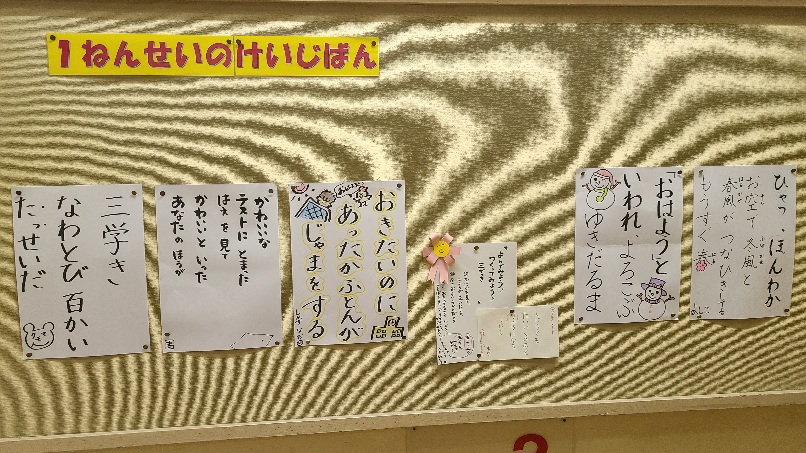 1ねんせいのけいじばん
ひゃっ、ほんわか
お空で冬風と
春風がつなひきしてる
もうすぐ春
「おはよう」と
いわれ、よろこぶ
ゆきだるま
おきたいのに
あったかふとんが
じゃまをする
かわいいな
テストにとまた
はえを見て
かわいいといった
あなたのほうが
三学き
なわとび百かい
たっせいだ